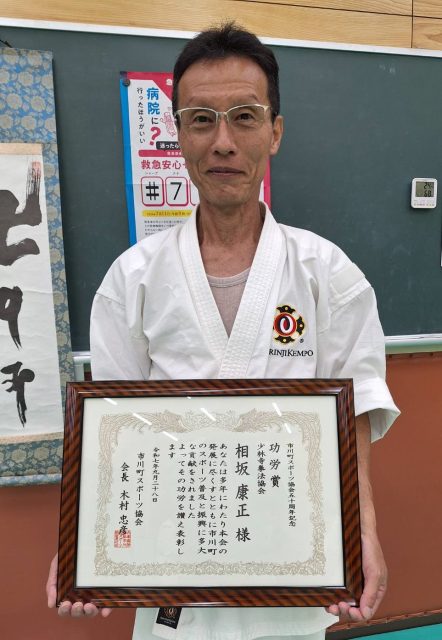 病院に
行ったほうがいい
?
迷ったら
救急安心
#7
RINJIKEMPO
市川町スポーツ協会五十周年記念
功労賞
少林寺拳法協会
相坂康正様
あなたは多年にわたり本会の
発展に尽くすとともに市川町
のスポーツ普及と振興に多大
な貢献をされました
よってその功労を讃え表彰し
ます
令和七年九月二十八日
市川町スポーツ協会
会長 木村忠彦